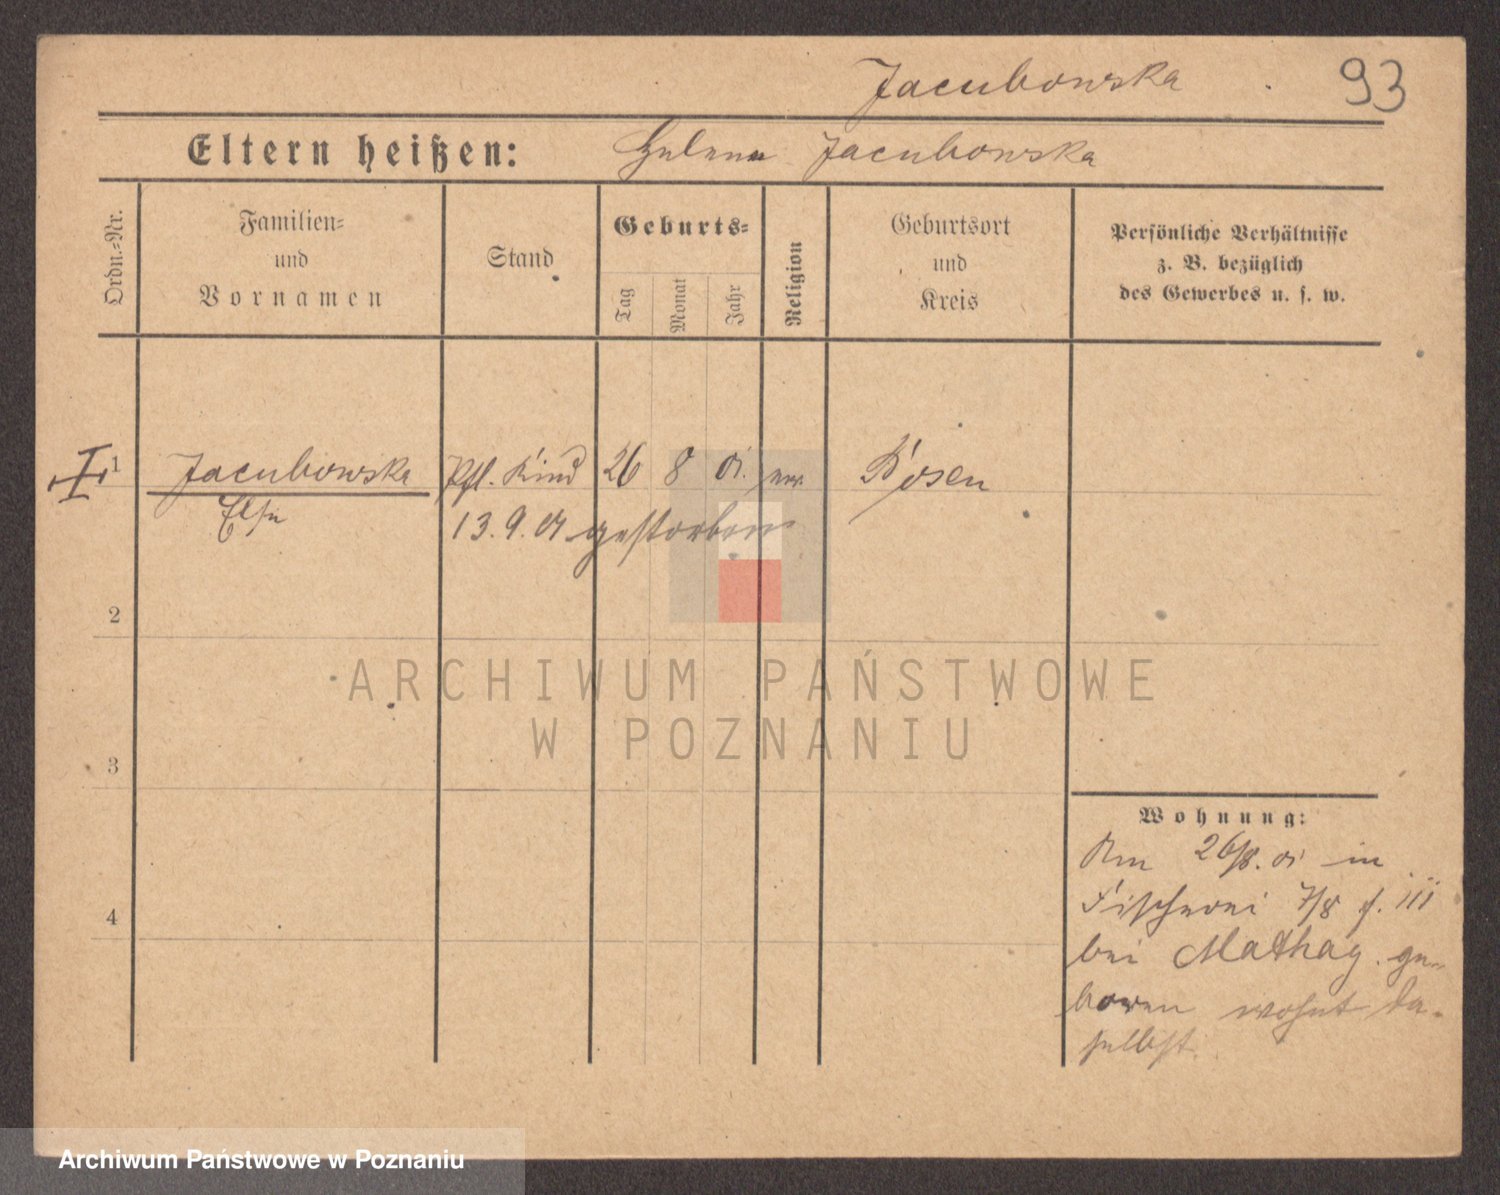 Jacubowska . 93
Eltern heißen: Helena Jacubowska
Ordn.=Nr.
Familien=
und
Vornamen
Stand
Geburts=
Tag
Monat
Jahr
Religion
Geburtsort
und
Kreis
Persönliche Verhältnisse
z. B. bezüglich
des Gewerbes u. s. w.
1 Jacubowska Pfl. Kind 26 8 01. Posen
Else 13. 9. 01 gestorben
2
ARCHIWUM PAŃSTWOWE
W POZNANIU
3
Wohnung:
Am 26/8. 01 in
Fischerei 7/8 III
4
bei Mathag. ge-
boren wohnt da-
selbst.
Archiwum Państwowe w Poznaniu